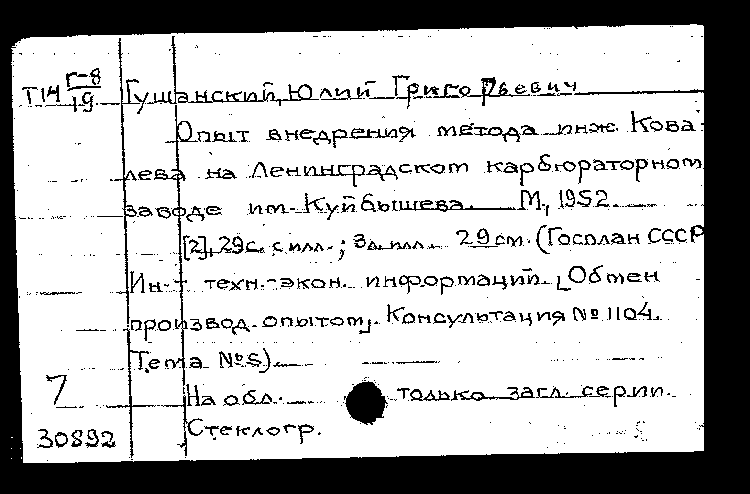 Т14 Г-8
19
Гущанский, Юлий Григорьевич
Опыт внедрения метода инж. Кова-
лева на Ленинградском карбюраторном
заводе им. Куйбышева. М., 1952
[2], 29 с. с илл.; 3 л. илл. 29 см. (Госплан СССР
Ин-т техн.-экон. информации. [Обмен
производ. опытом]. Консультация № 1104.
Тема № 5).
7
На обл. только загл. серии.
30892
Стеклогр.